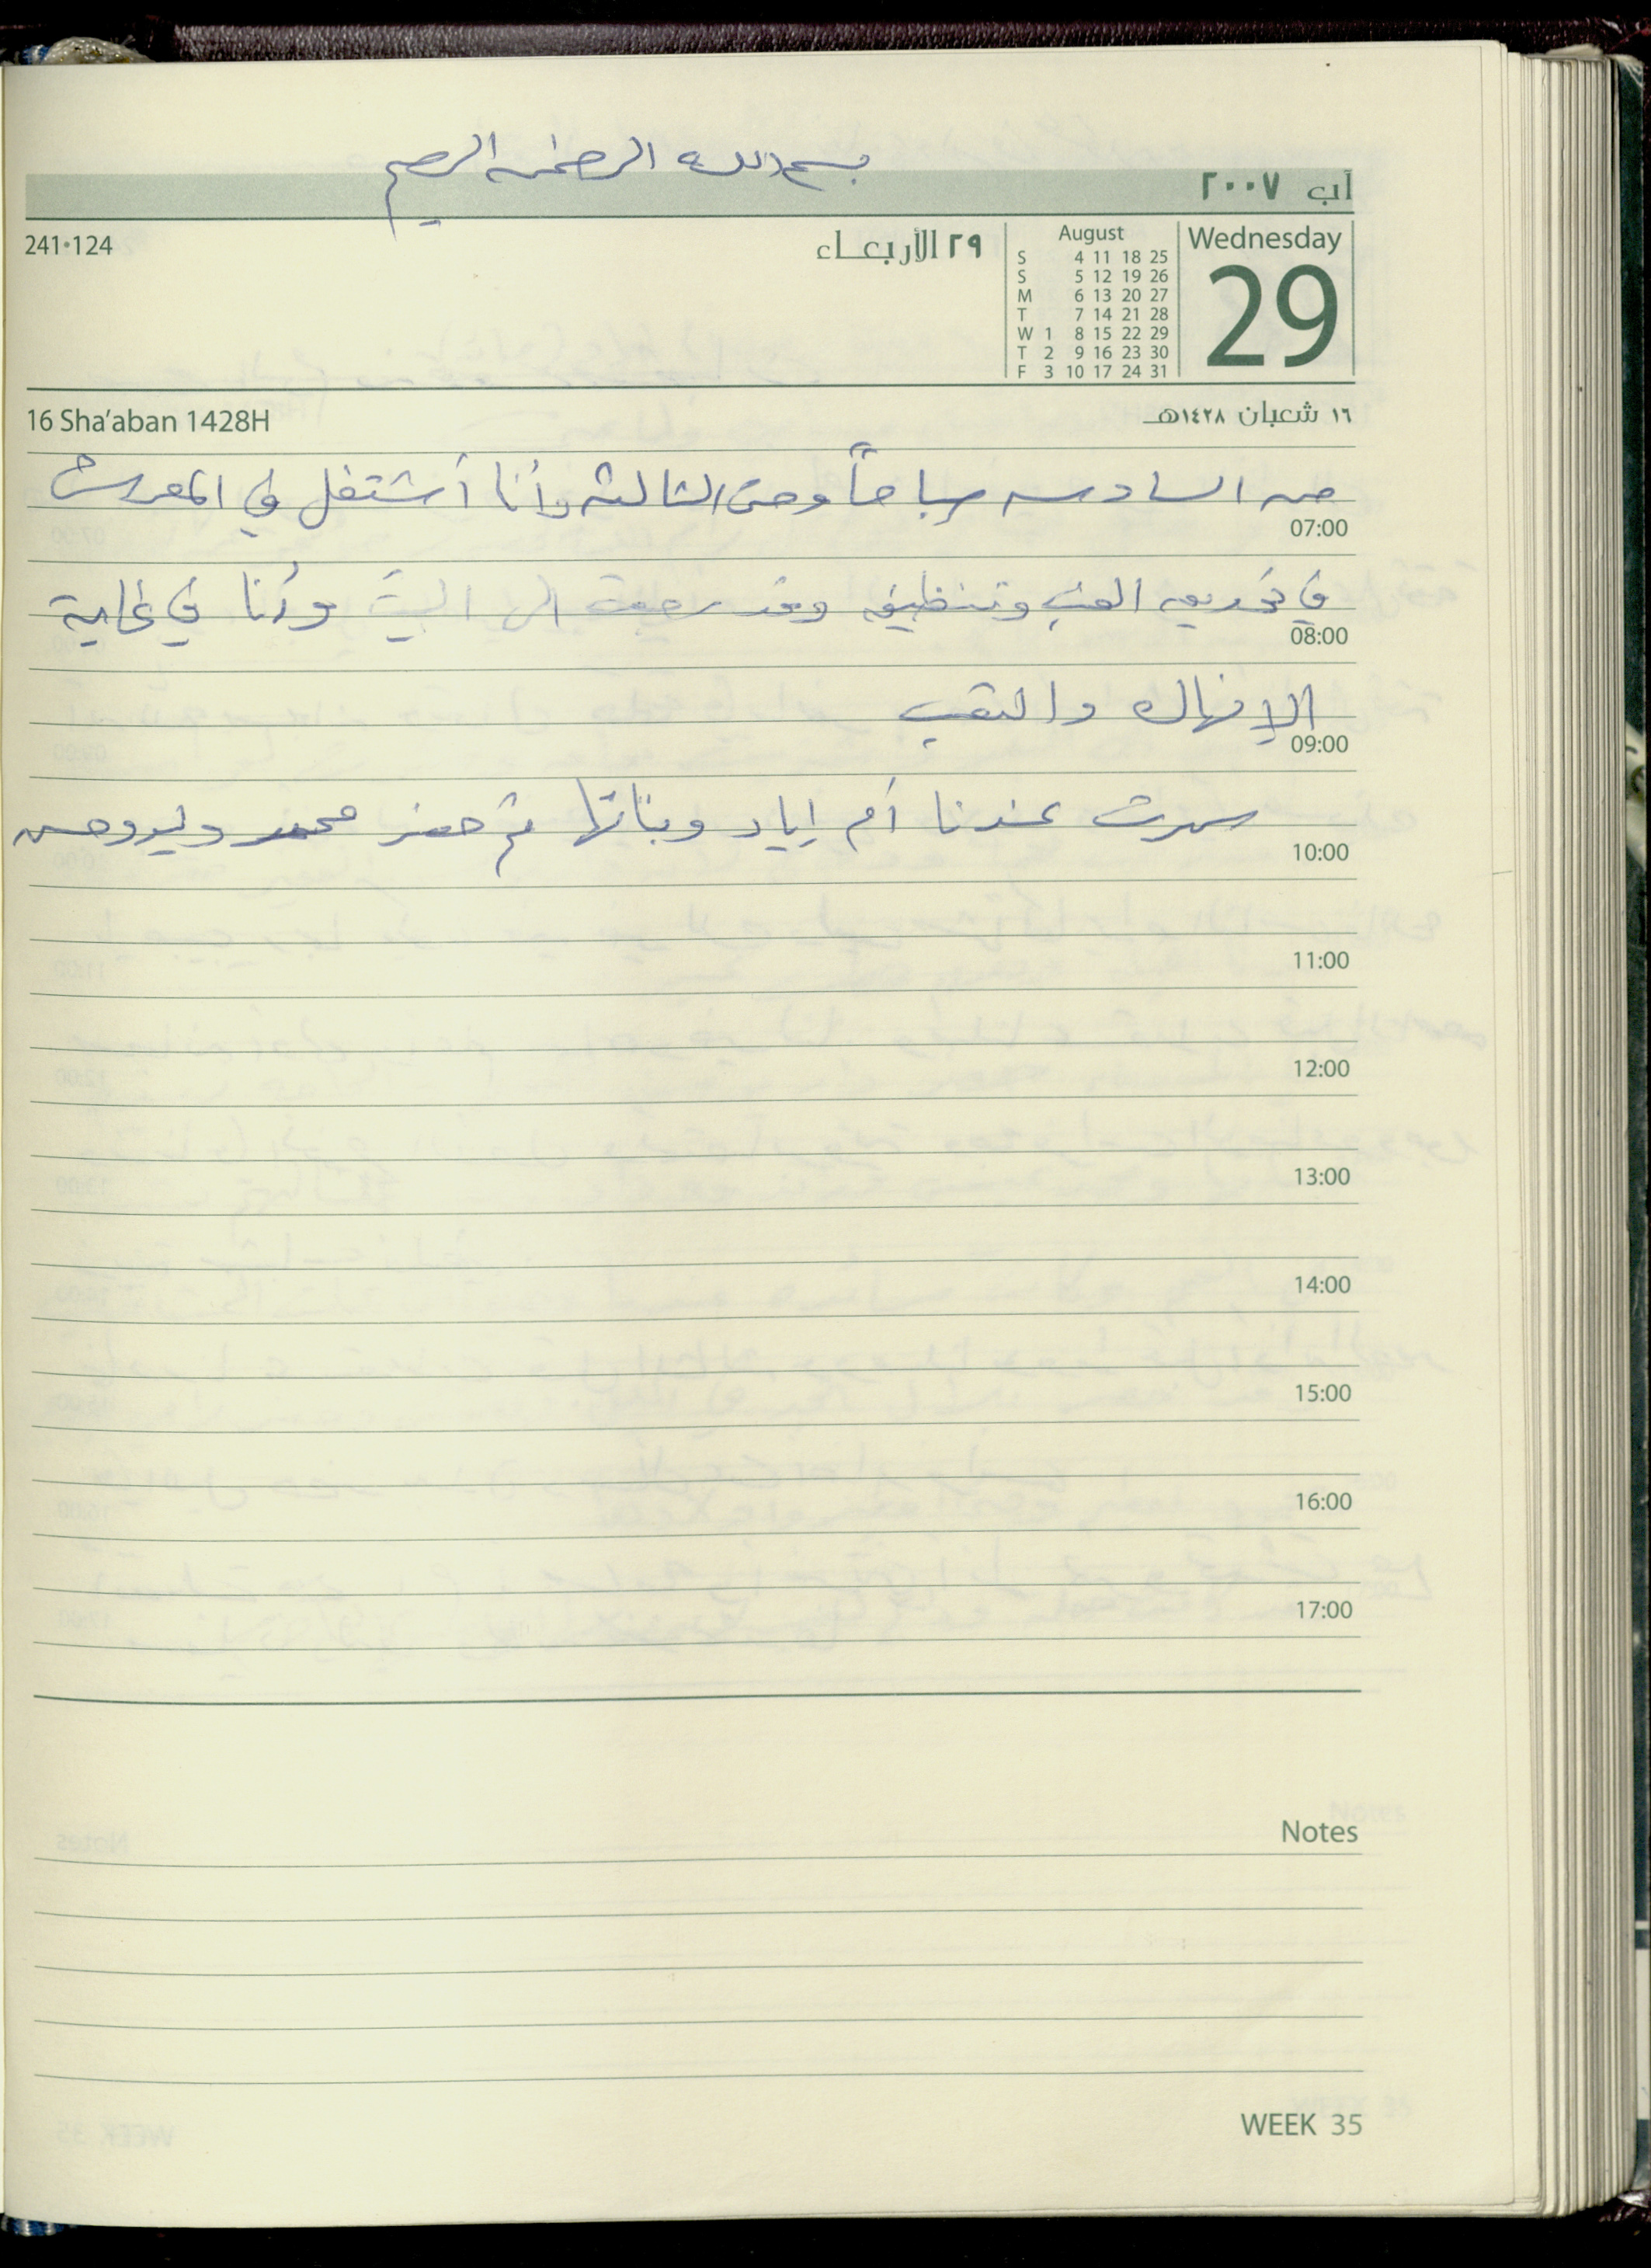 بسم الله الرحمن الرحيم
آب ٢٠٠٧
241•124
٢٩ الأربعاء
August
S 4 11 18 25
S 5 12 19 26
M 6 13 20 27
T 7 14 21 28
W 1 8 15 22 29
T 2 9 16 23 30
F 3 10 17 24 31
Wednesday
29
16 Sha'aban 1428H
١٦ شعبان ١٤٢٨هـ
من السادسة صباحاً وحتى الثالثة وأنا أشتغل في المعرش
07:00
في تخريط العنب وتنظيفه وقد رجعت إلى البيت وأنا في غاية
08:00
الإنهاك والتعب
09:00
سهرت عندنا أم إياد وبناتها ثم حضر محمد
10:00
11:00
12:00
13:00
14:00
15:00
16:00
17:00
Notes
WEEK 35